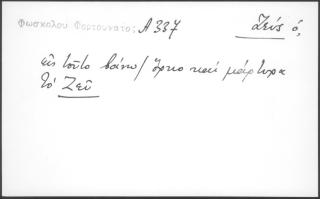 Φωσκόλου Φορτουνάτος, Α 337 Ζεύς ὁ,
εἰς τοῦτο βάνω / ὅρκο καὶ μάρτυρα
τὸ Ζεῦ